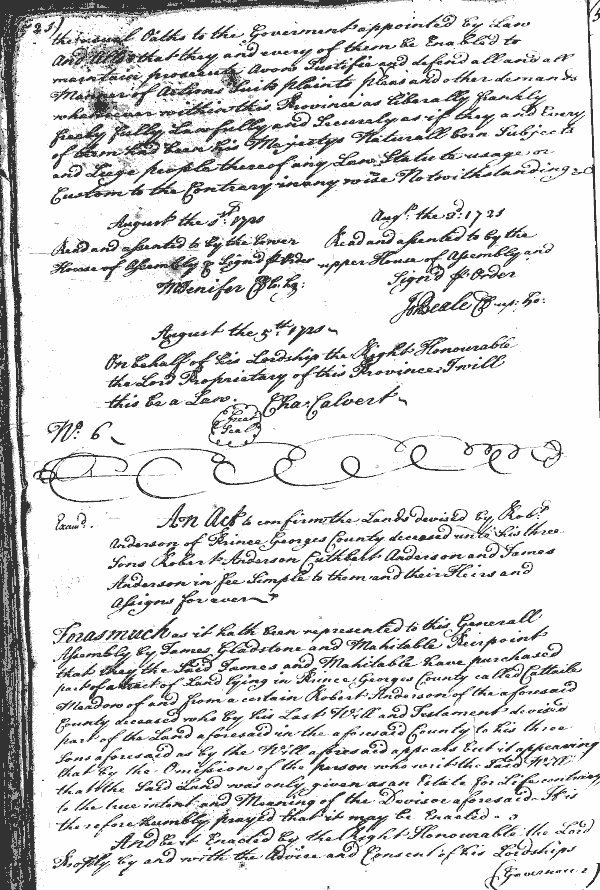 (25)
the usual Oaths to the Goverment appointed by Law
And Also that they and every of them be Enabled to
maintain prosecute Avow Justifie and defend all and all
Manner of Actions Suits plaints pleas and other demands
whatsoever within this Province as liberally frankly
freely fully Lawfully and Securely as if they and Every
of them had been his Majestys Naturall born Subjects
and Liege people thereof any Law Statute usage or
Custom to the Contrary in any wise Notwithstanding
August the 3d. 1721
Read and assented to by the Lower
House of Assembly & Signd p Order
MJenifer Cl lo. h:
Augt. the 3d: 1721
Read and assented to by the
upper House of Assembly and
Signd p Order
Jo Beale Cl up: ho:
August the 5th 1721
On behalf of his Lordship the Right Honourable
the Lord Proprietary of this Province I will
this be a Law.
Cha: Calvert
Great Seal
No. 6
Examd.
An Act to confirm the Lands devised by Robt.
Anderson of Prince Georges County deceased unto his three
Sons Robert Anderson Cuthbert Anderson and James
Anderson in fee Simple to them and their Heirs and
Assigns for ever
Forasmuch as it hath been represented to this Generall
Assembly by James Gladstone and Mahitable Peirpoint
that they the Said James and Mahitable have purchased
part of a tract of Land lying in Prince Georges County called Cattaile
Meadow of and from a certain Robert Anderson of the aforesaid
County deceased who by his Last Will and Testament devised
part of the Land aforesaid in the aforesaid County to his three
Sons aforesaid as by the Will aforesaid appears but it appearing
that by the Omission of the person who writ the Said Will
that the Said Land was only given as an Estate for Life contrary
to the true intent and Meaning of the Devisor aforesaid It is
therefore humbly prayed that it may be Enacted
And be it Enacted by the Right Honourable the Lord
Proptry by and with the Advice and Consent of his Lordships
(Governour